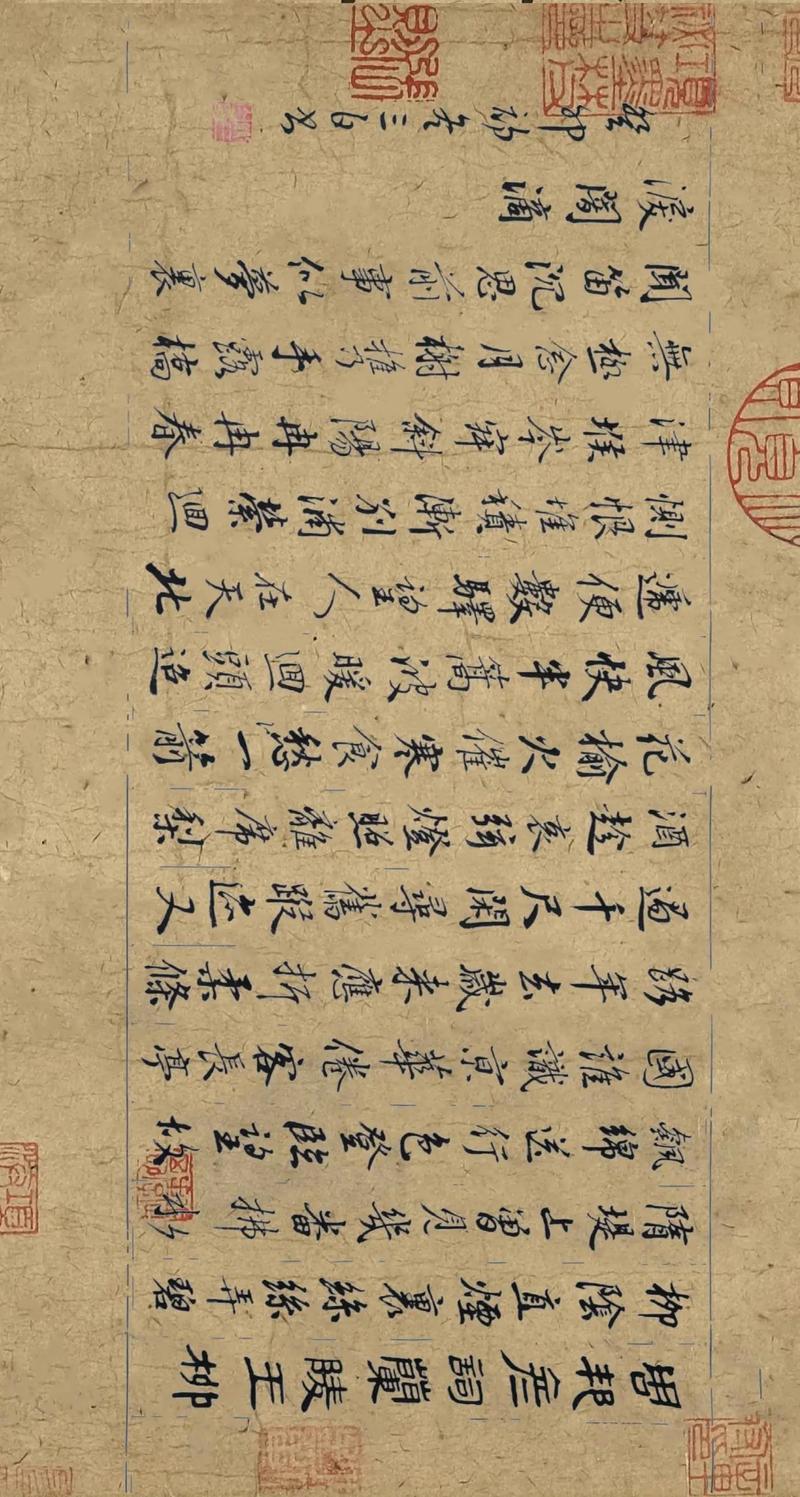 周邦彥詞蘭陵王柳
柳陰直煙裏絲絲弄碧
隋堤上曾見幾番拂水
飄綿送行色登臨望故
國誰識京華倦客長亭
路年去歲來應折柔條
過千尺閑尋舊蹤迹又
酒趁哀弦燈照離席梨
花榆火催寒食愁一箭
風快半篙波暖迴頭迢
遞便數驛望人在天北
惻恨堆積漸別浦縈迴
津堠岑寂斜陽冉冉春
無極念月榭攜手露橋
聞笛沉思前事似夢裏
淚闇滴
癸卯初冬三白书